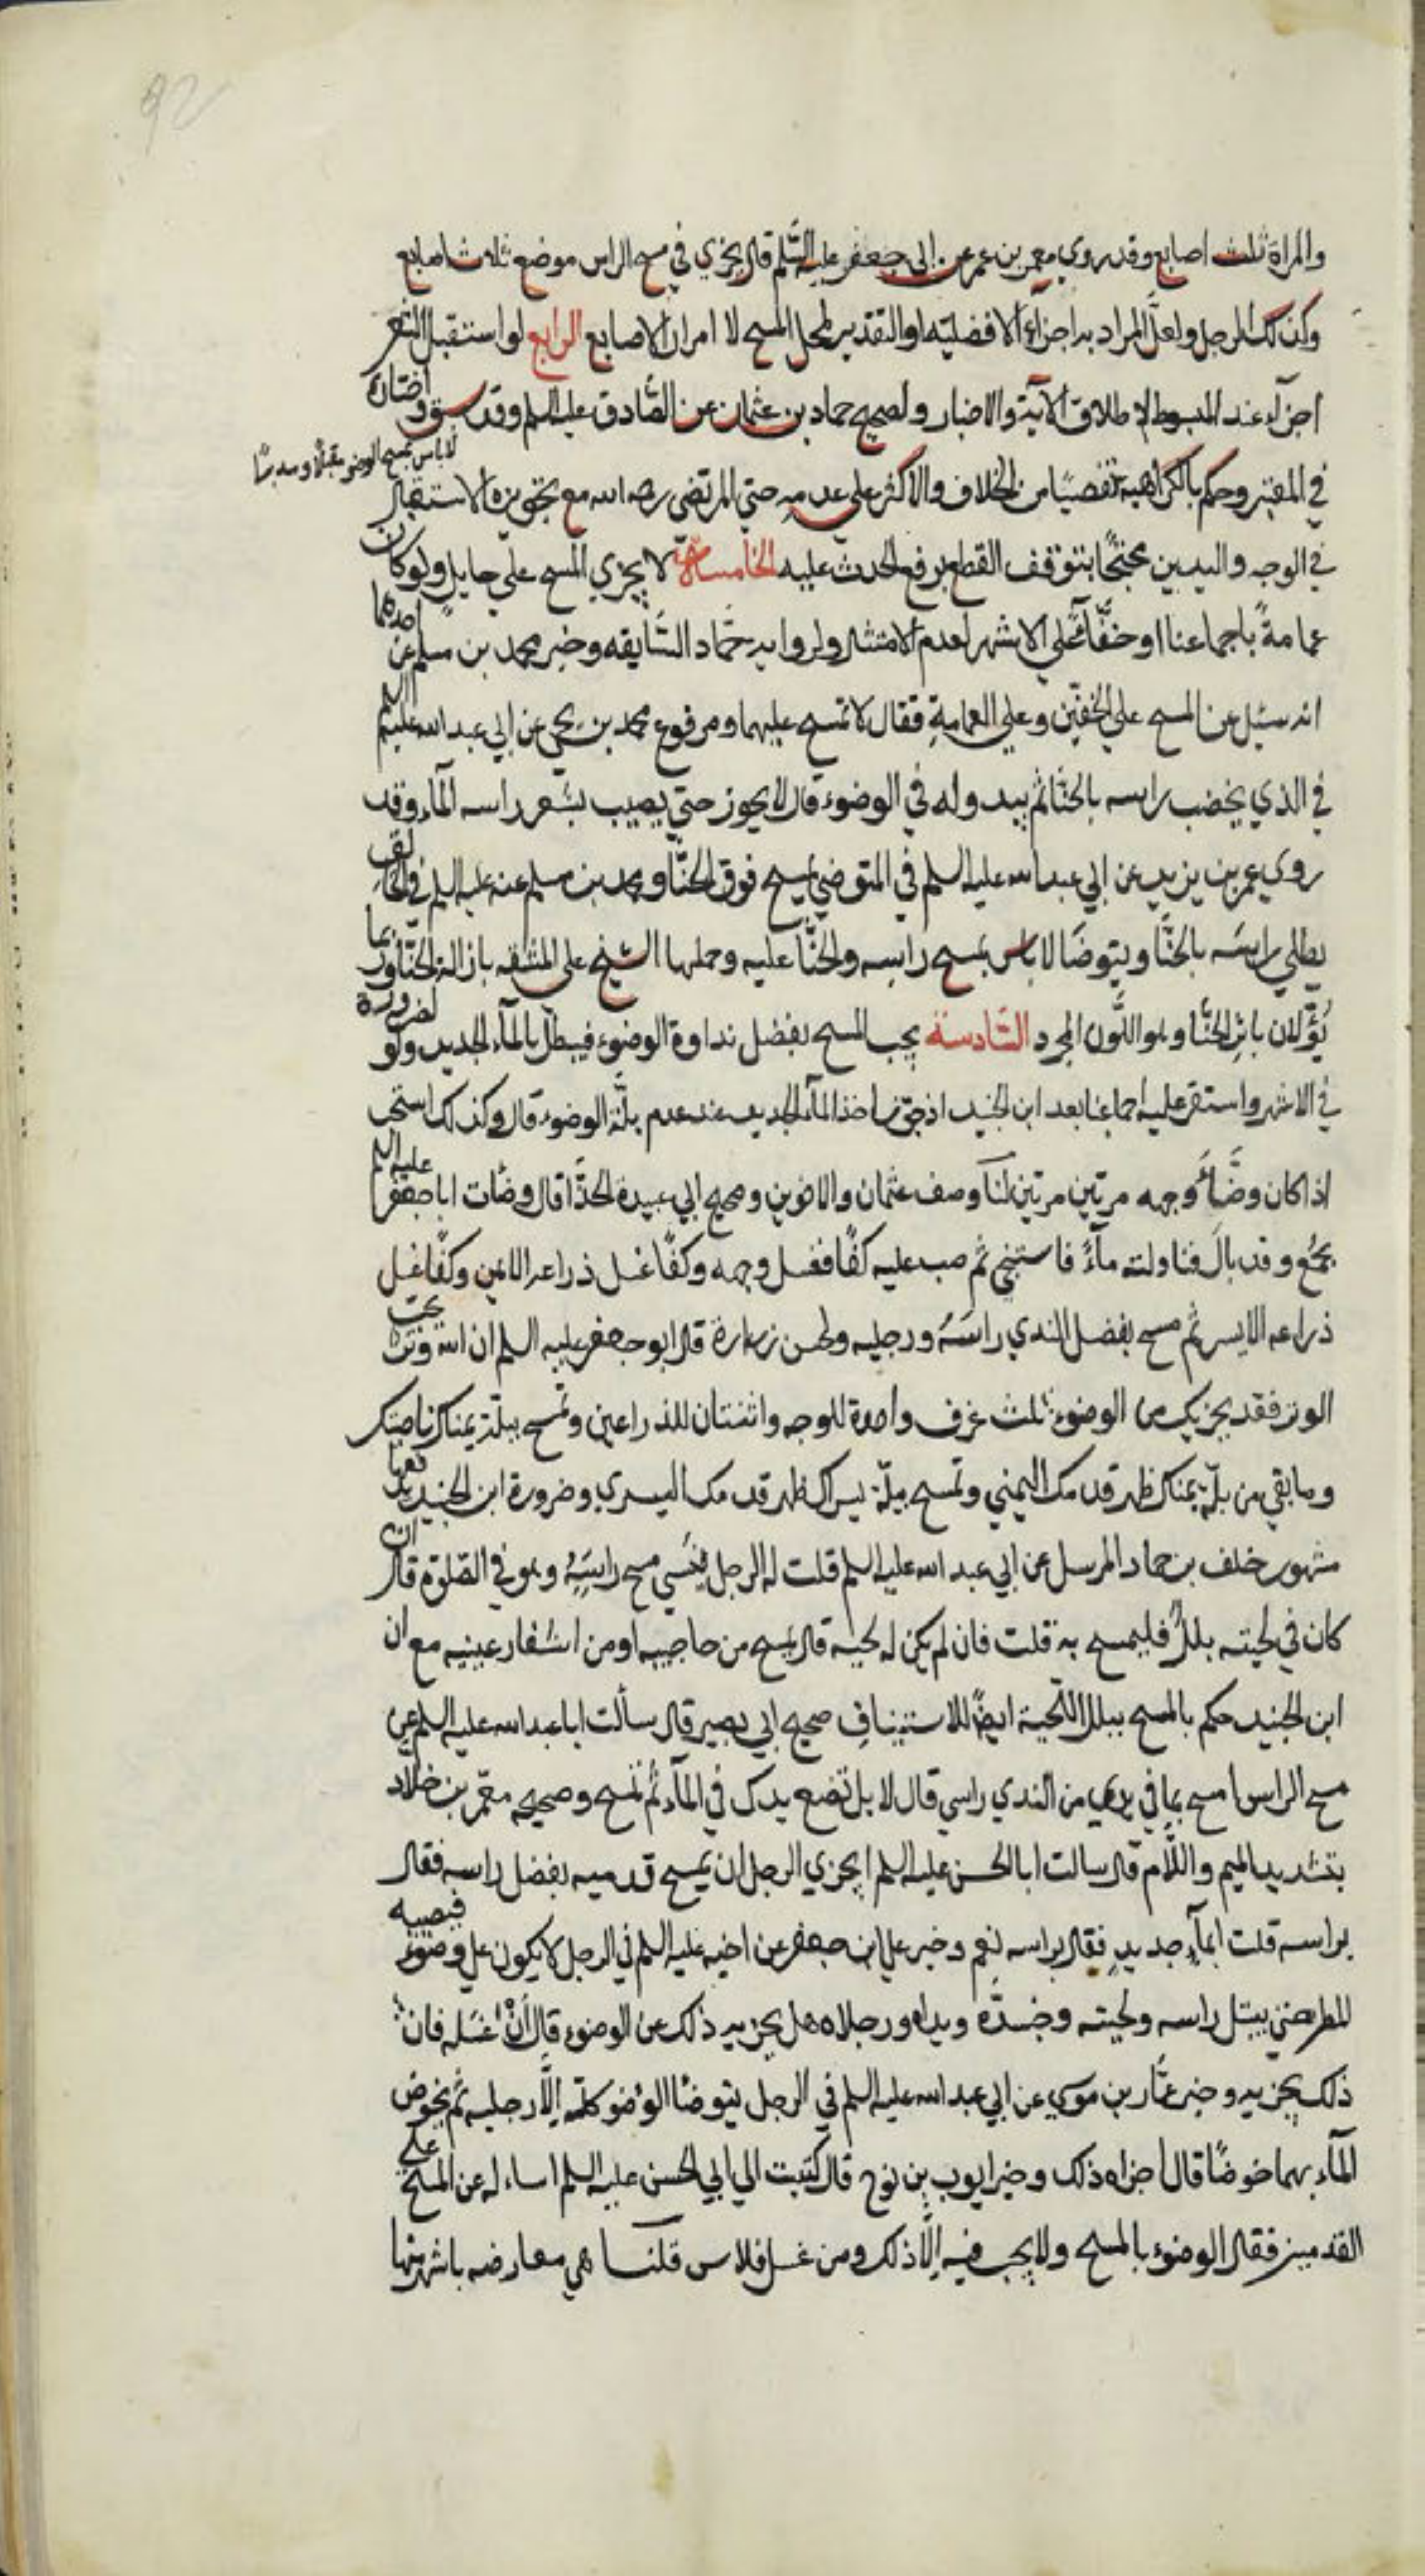 92
والمراة ثلث اصابع وقد روي معمر بن عمر عن ابي جعفر عليه السّلم قال يجزي في مسح الراس موضع ثلاث اصابع
وكذلك الرجل ولعلّ المراد به اجزآء الافضليّه او التقدير لمحل المسح لا امرار الاصابع الرابع لو استقبل الشعر
اجزآء عند المبسوط لاطلاق الآية والاخبار ولصحيح حماد بن عثمان عن الصّادق عليه السلم وقد سبق واختاره
لا باس بمسح الوضوء مقبلا ومدبرًا
في المعتبر وحكم بالكراهية تفصيًا من الخلاف والاكثر على عدمه حتي المرتضي رحمه الله مع تجويزه الاستقبال
في الوجه واليدين محتجًا بتوقف القطع برفع الحدث عليه الخامسة لا يجزي المسح علي حايل ولو كان
عمامةً باجماعنا او خفًّا على الاشهر لعدم الامتثال ولروايه حمّاد السّابقه وخبر محمد بن مسلم عن احدهما
انه سئل عن المسح علي الخفّين وعلي العمامةِ فقال لا تمسح عليهما ومرفوع محمد بن يحيي عن ابي عبد الله عليه السلم
في الذي يخضب راسه بالحنّا ثم يبدو له في الوضوء قال لا يجوز حتي يصيب بشعر راسه المآء وقد
روي عمر بن يزيد عن ابي عبد الله عليه السلم في المتوضي يمسح فوق الحنّا ومحمد بن مسلم عنه عليه السلم في الحالق
يطلي راسَه بالحنّا ويتوضا لا باس بمسح راسِه والحنّا عليه وحملها الشيخ علي المشقه بازالة الحنّا وربما
يُؤوّلان باثر الحنّا وهو اللّون المجرد السّادسة يجب المسح بفضل نداوة الوضوء فيبطل بالمآء الجديد ولو لضرورة
في الاشهر واستقر عليه اجماعنا بعد ابن الجنيد اذ جوّز اخذ المآء الجديد عند عدم بلّة الوضوء قال وكذلك استحب
اذا كان وضّأ وجهه مرتين مرتين لنا وصف عثمان والاخوين وصحيح ابي عبيدة الحذّا قال وضّات ابا جعفر عليه السلم
بجمع وقد بالَ فناولته مآءً فاستنجي ثم صب عليه كفًا فغسل وجهه وكفًا غسل ذراعه الايمن وكفًا غسل
ذراعه الايسر ثم مسح بفضل الندي راسَه ورجليه ولحسن زرارة قال ابو جعفر عليه السلم ان الله وتر يحب
الوتر فقد يجزيك من الوضوء ثلث غرف واحدة للوجه واثنتان للذراعين وتمسح ببلّة يمناك ناصيتك
وما بقي من بلّة يمناك ظهر قدمك اليمني وتمسح ببلّة يسراك ظهر قدمك اليسري وضرورة ابن الجنيد يدفعها
مشهور خلف بن حماد المرسل عن ابي عبد الله عليه السلم قلت له الرجل ينسي مسح راسِهِ وهو في الصّلوة قال ان
كان في لحيته بللٌ فليمسح به قلت فان لم يكن له لحيه قال يمسح من حاجبيه او من اشفار عينيه مع ان
ابن الجنيد حكم بالمسح ببلل اللّحية ايضًا للاستيناف صحيح ابي بصير قال سألت ابا عبد الله عليه السلم عن
مسح الراس امسح بما في يدي من الندي راسي قال لا بل تضع يدك في المآء ثم تمسح وصحيح معمّر بن خلّاد
بتشديد الميم واللّام قال سالت ابا الحسن عليه السلم ايجزي الرجل ان يمسح قدميه بفضل راسه فقال
براسه قلت ابمآءٍ جديدٍ فقال براسه نعم وخبر علي بن جعفر عن اخيه عليه السلم في الرجل لا يكون علي وضوء فيصيبه
المطر حتي يبتل راسه ولحيته وجسدُه ويداه ورجلاه هل يجزيه ذلك عن الوضوء قال اِنْ غسَله فانّ
ذلك يجزيه وخبر عمّار بن موسي عن ابي عبد الله عليه السلم في الرجل يتوضّا الوضو كلّه الّا رجليه ثم يخوض
المآء بهما خوضًا قال اجزاه ذلك وخبر ايوب بن نوح قال كتبت الي ابي الحسن عليه السلم اساله عن المسح علي
القدمين فقال الوضوء بالمسح ولا يجب فيه الّا ذلك ومن غسل فلا باس قلنا هي معارضه باشهر منها